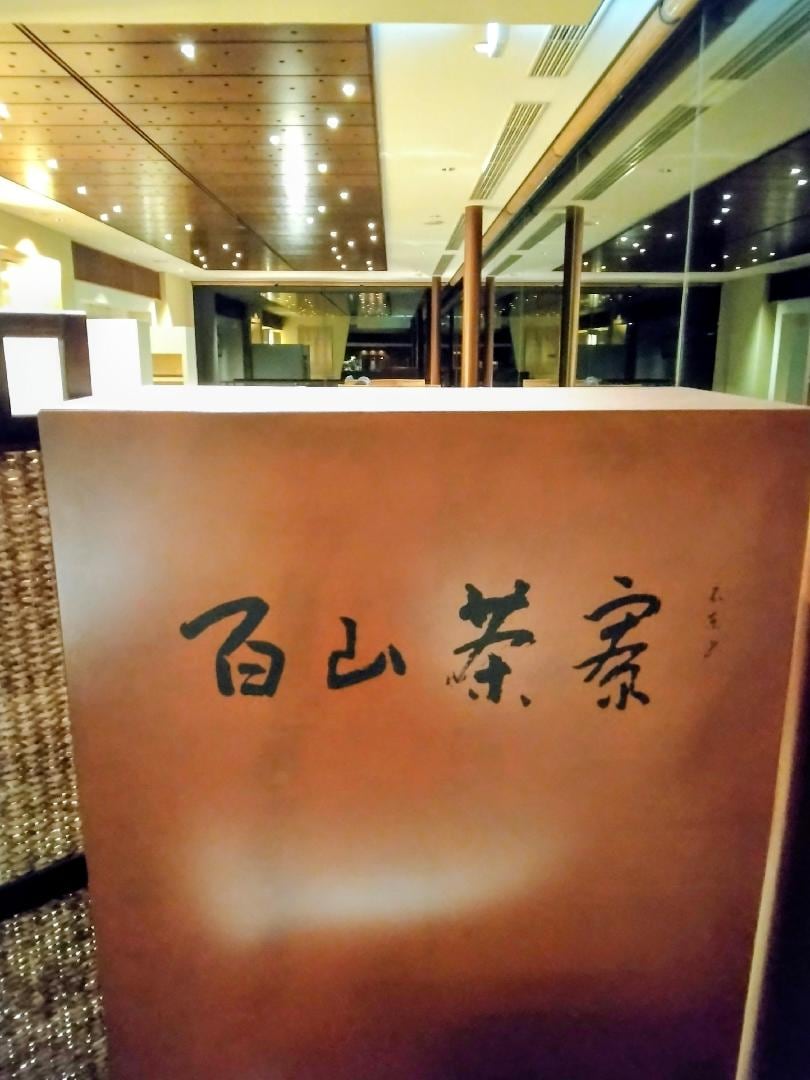 百山茶寮